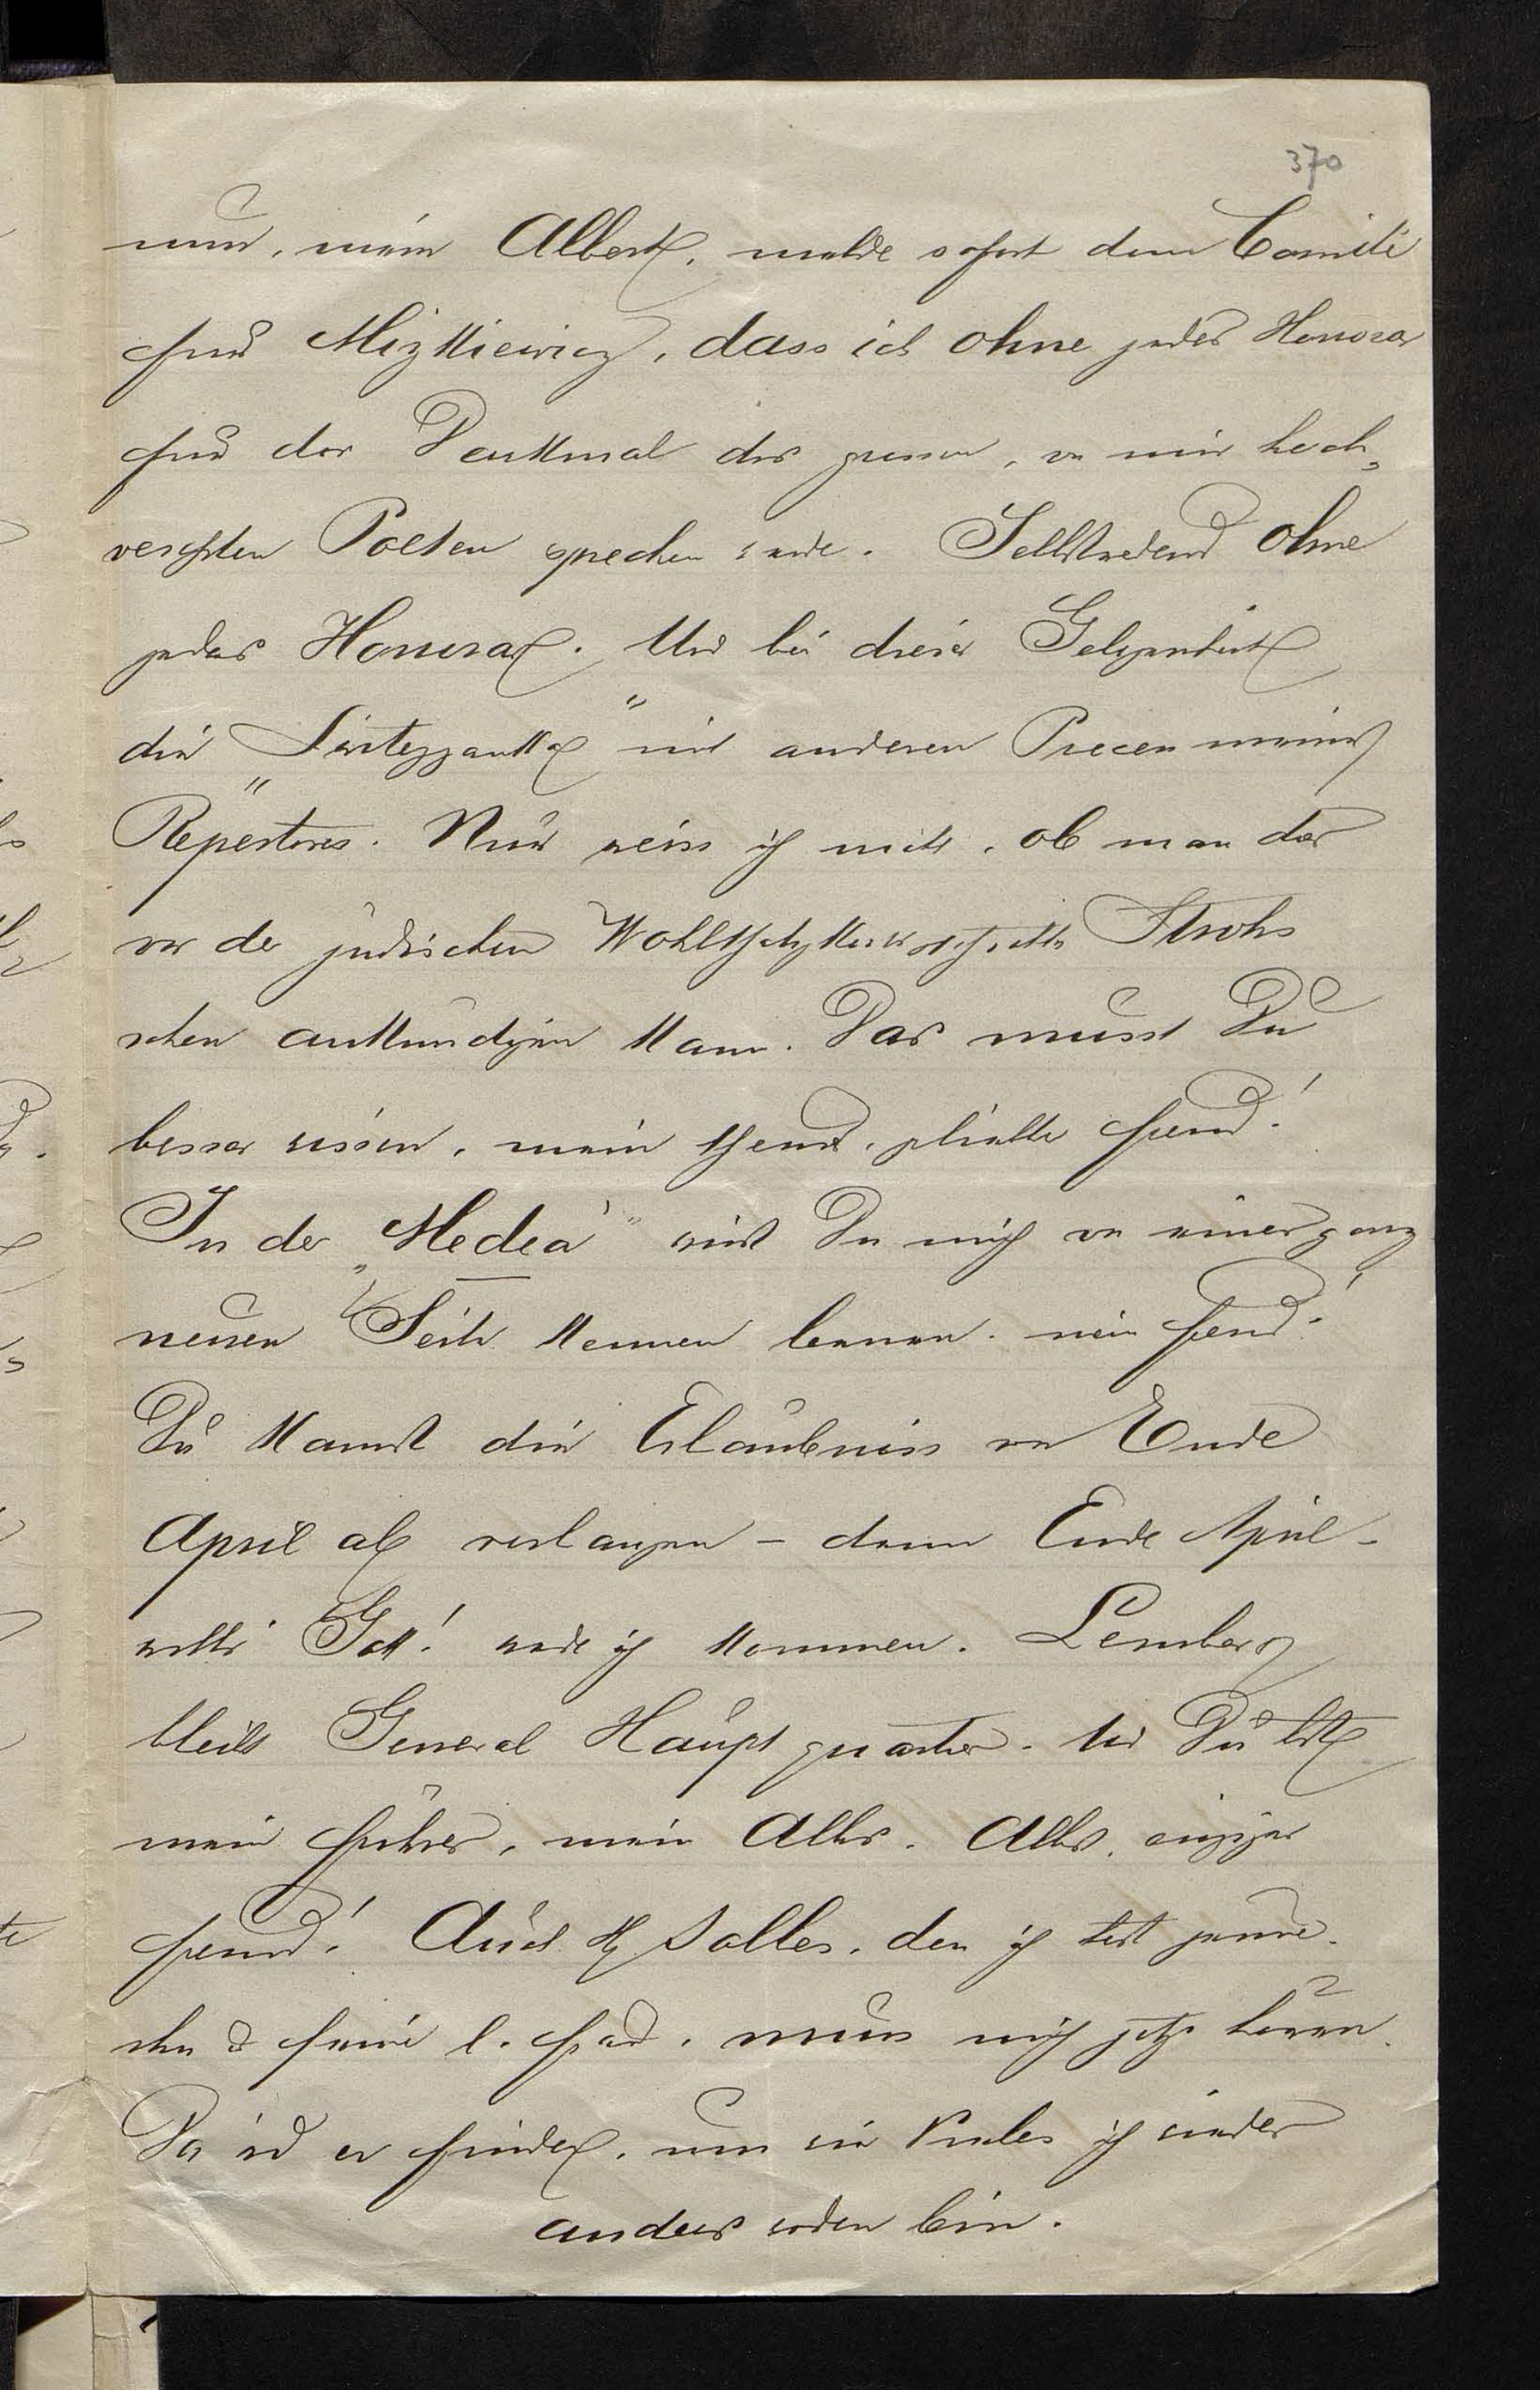 370
nun, mein Albert, melde sofort dem Comité
für Mizkiewicz, dass ich ohne jedes Honorar
für das Denkmal des grossen, von mir hoch-
verehrten Poeten sprechen werde. Selbstredend ohne
jedes Honorar. Und bei dieser Gelegenheit
die " mit anderen Piecen meines
Repertoires. Nur weiss ich nicht, ob man das
vor der jüdischen
schon ankündigen kann. Das musst Du
besser wissen, mein theurer, geliebter Freund!
In der „Medea" wirst Du mich von einer ganz
neuen Seite kennen lernen. mein Freund!
Du kannst die Erlaubniss von Ende
April ab verlangen – denn Ende April –
wills Gott! werde ich kommen. Lemberg
bleibt General Hauptquartier. Und Du bist
mein Führer, mein Alles. Alles, einziger
Freund! Auch H Salles, den ich
& seine l. Frau, muss mich jetzt hören.
Da wird er finden, um wie Vieles ich wieder
anders worden bin.